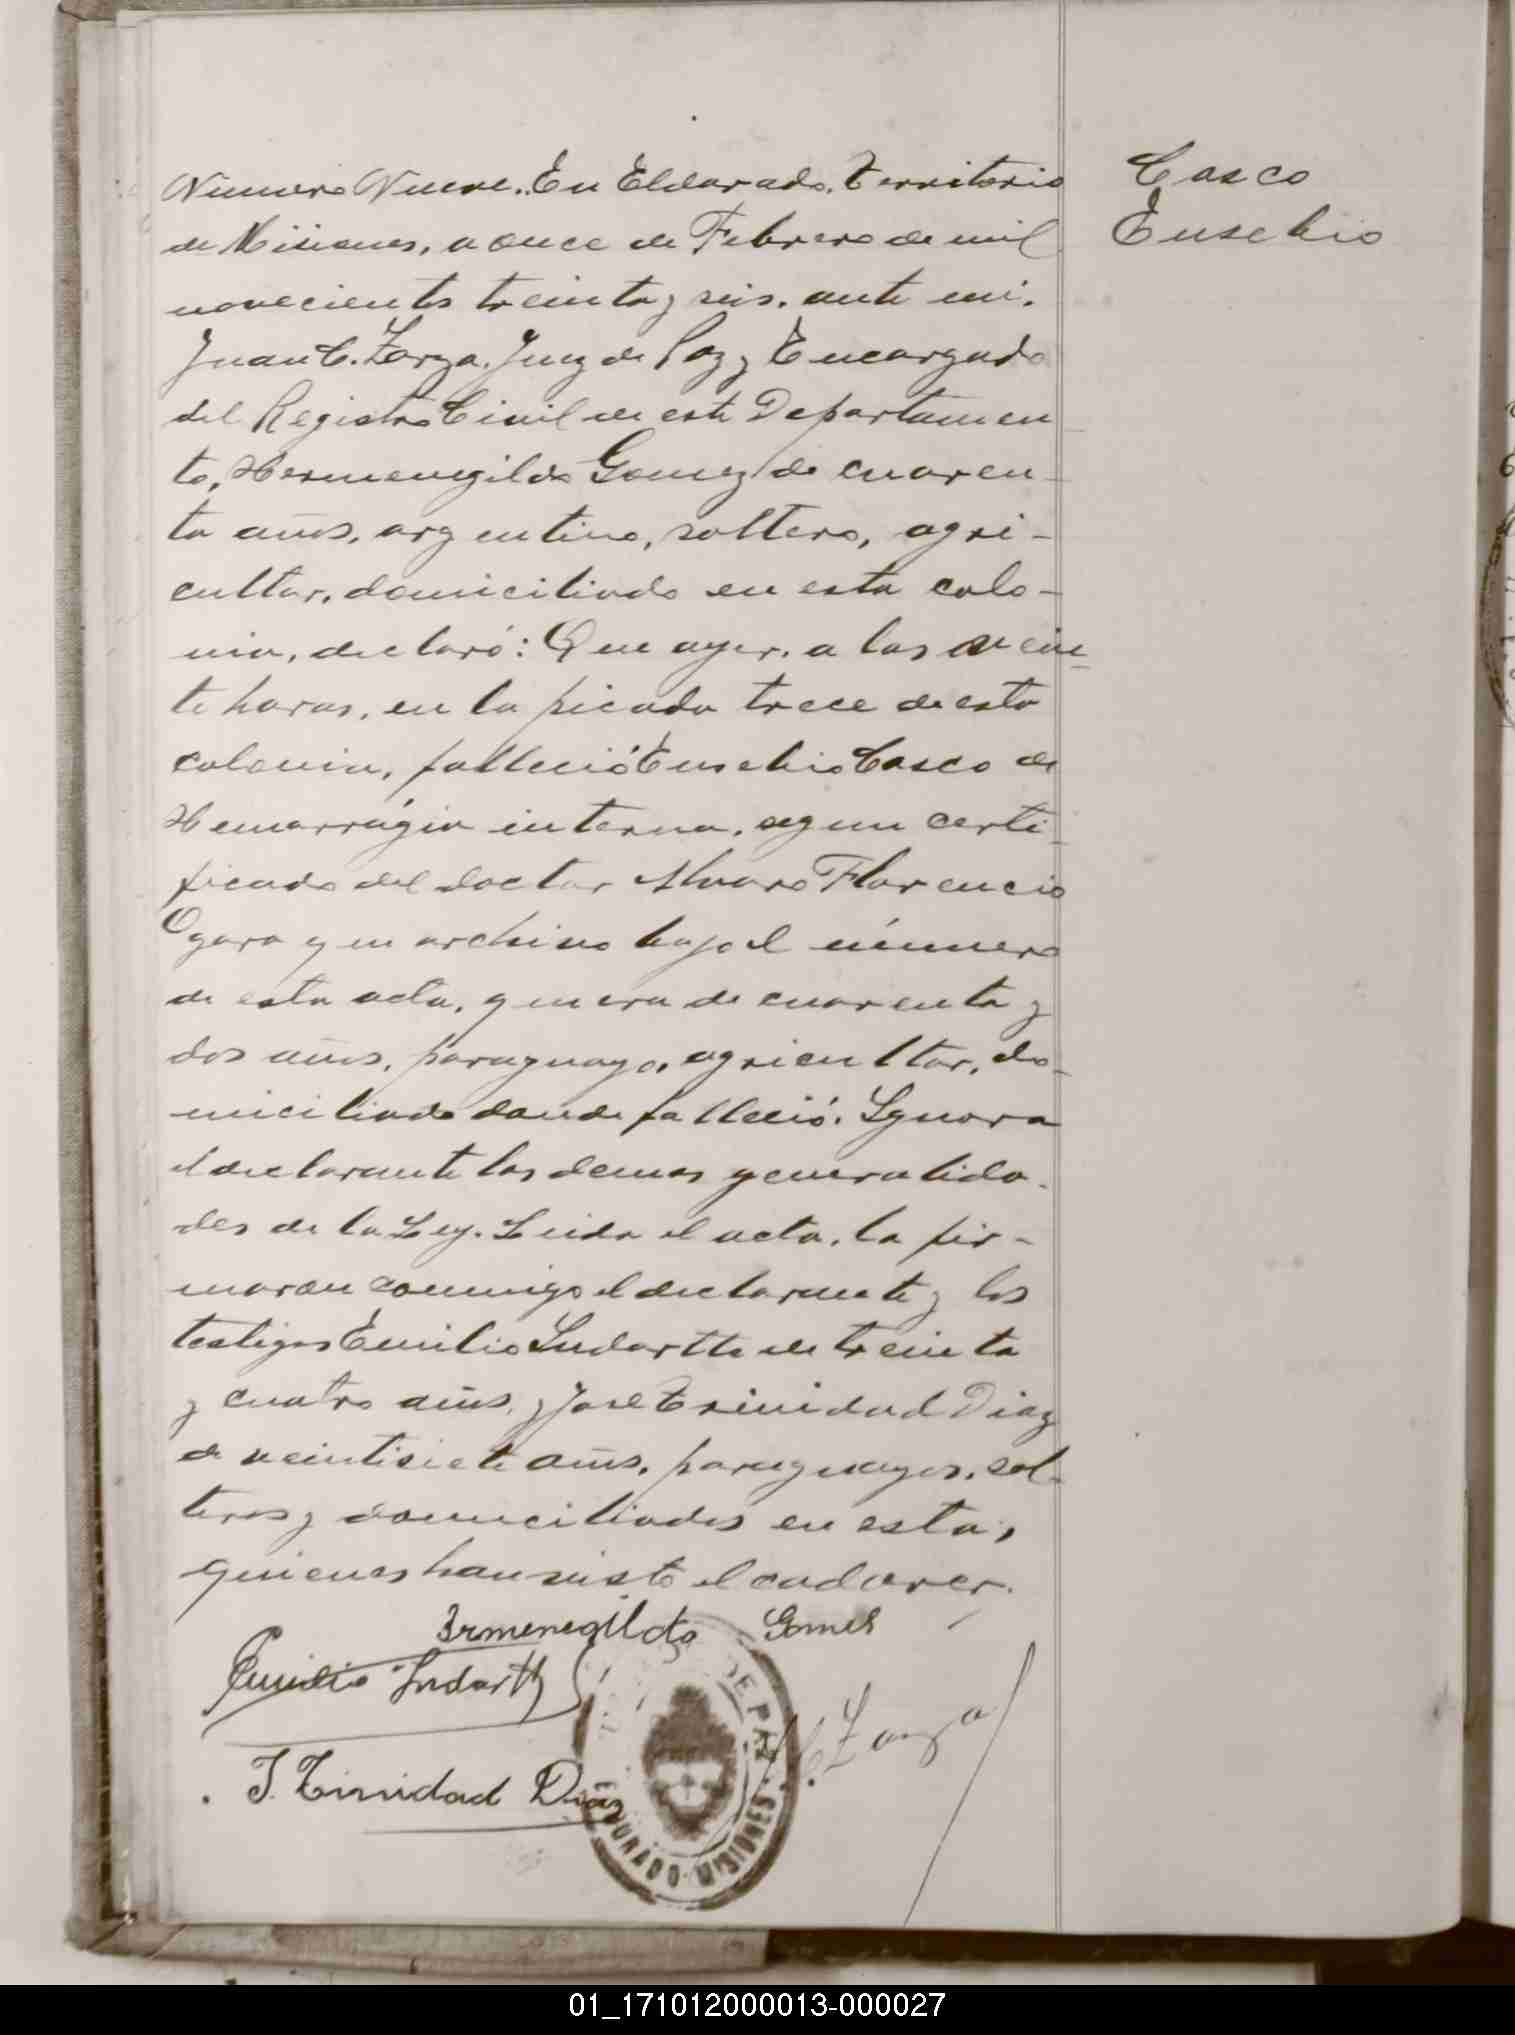 Casco
Eusebio
Número Nueve. En Eldorado, Territorio
de Misiones, a once de Febrero de mil
novecientos treinta y seis, ante mi,
Juan C. Zarza, Juez de Paz y Encargado
del Registro Civil de este Departamen
to, Hermenegildo Gomez de cuaren-
ta años, argentino, soltero, agri-
cultor, domiciliado en esta colo-
nia, declaró: Que ayer, a las vein-
te horas, en la picada trece de esta
colonia, falleció Eusebio Casco de
Hemorrágia interna, segun certi-
ficado del doctor Alvaro Florencio
Ogara que archivo bajo el número
de esta acta, que era de cuarenta y
dos años, paraguayo, agricultor, do-
miciliado donde falleció. Ignora
el declarante las demas generalida-
des de la Ley. Leida el acta, la fir-
maron conmigo el declarante y los
testigos Emilio Indartte de treinta
y cuatro años, y José Trinidad Diaz
de veintisiete años, paraguayos, sol-
teros y domiciliados en esta,
quienes han visto el cadaver.
Irmenegildo Gomes
Emilio Indartt
J. C. Zarza
J. Trinidad Diaz
DE PAZ
ELDORADO-MISIONES
01_171012000013-000027